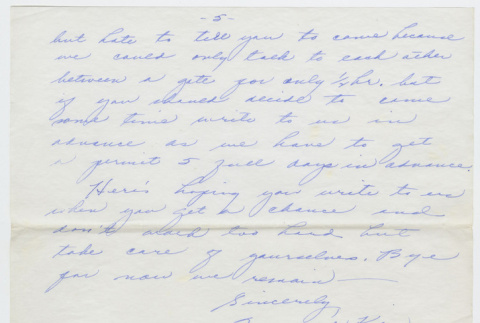 - 5 -
but hate to tell you to come because
we could only talk to each other
between a gate for only ½ hr. but
if you should decide to come
some time write to us in
advance as we have to get
a permit 5 full days in advance.
Here's hoping you write to us
when you get a chance and
don't work too hard but
take care of yourselves. Bye
for now we remain —
Sincerely,